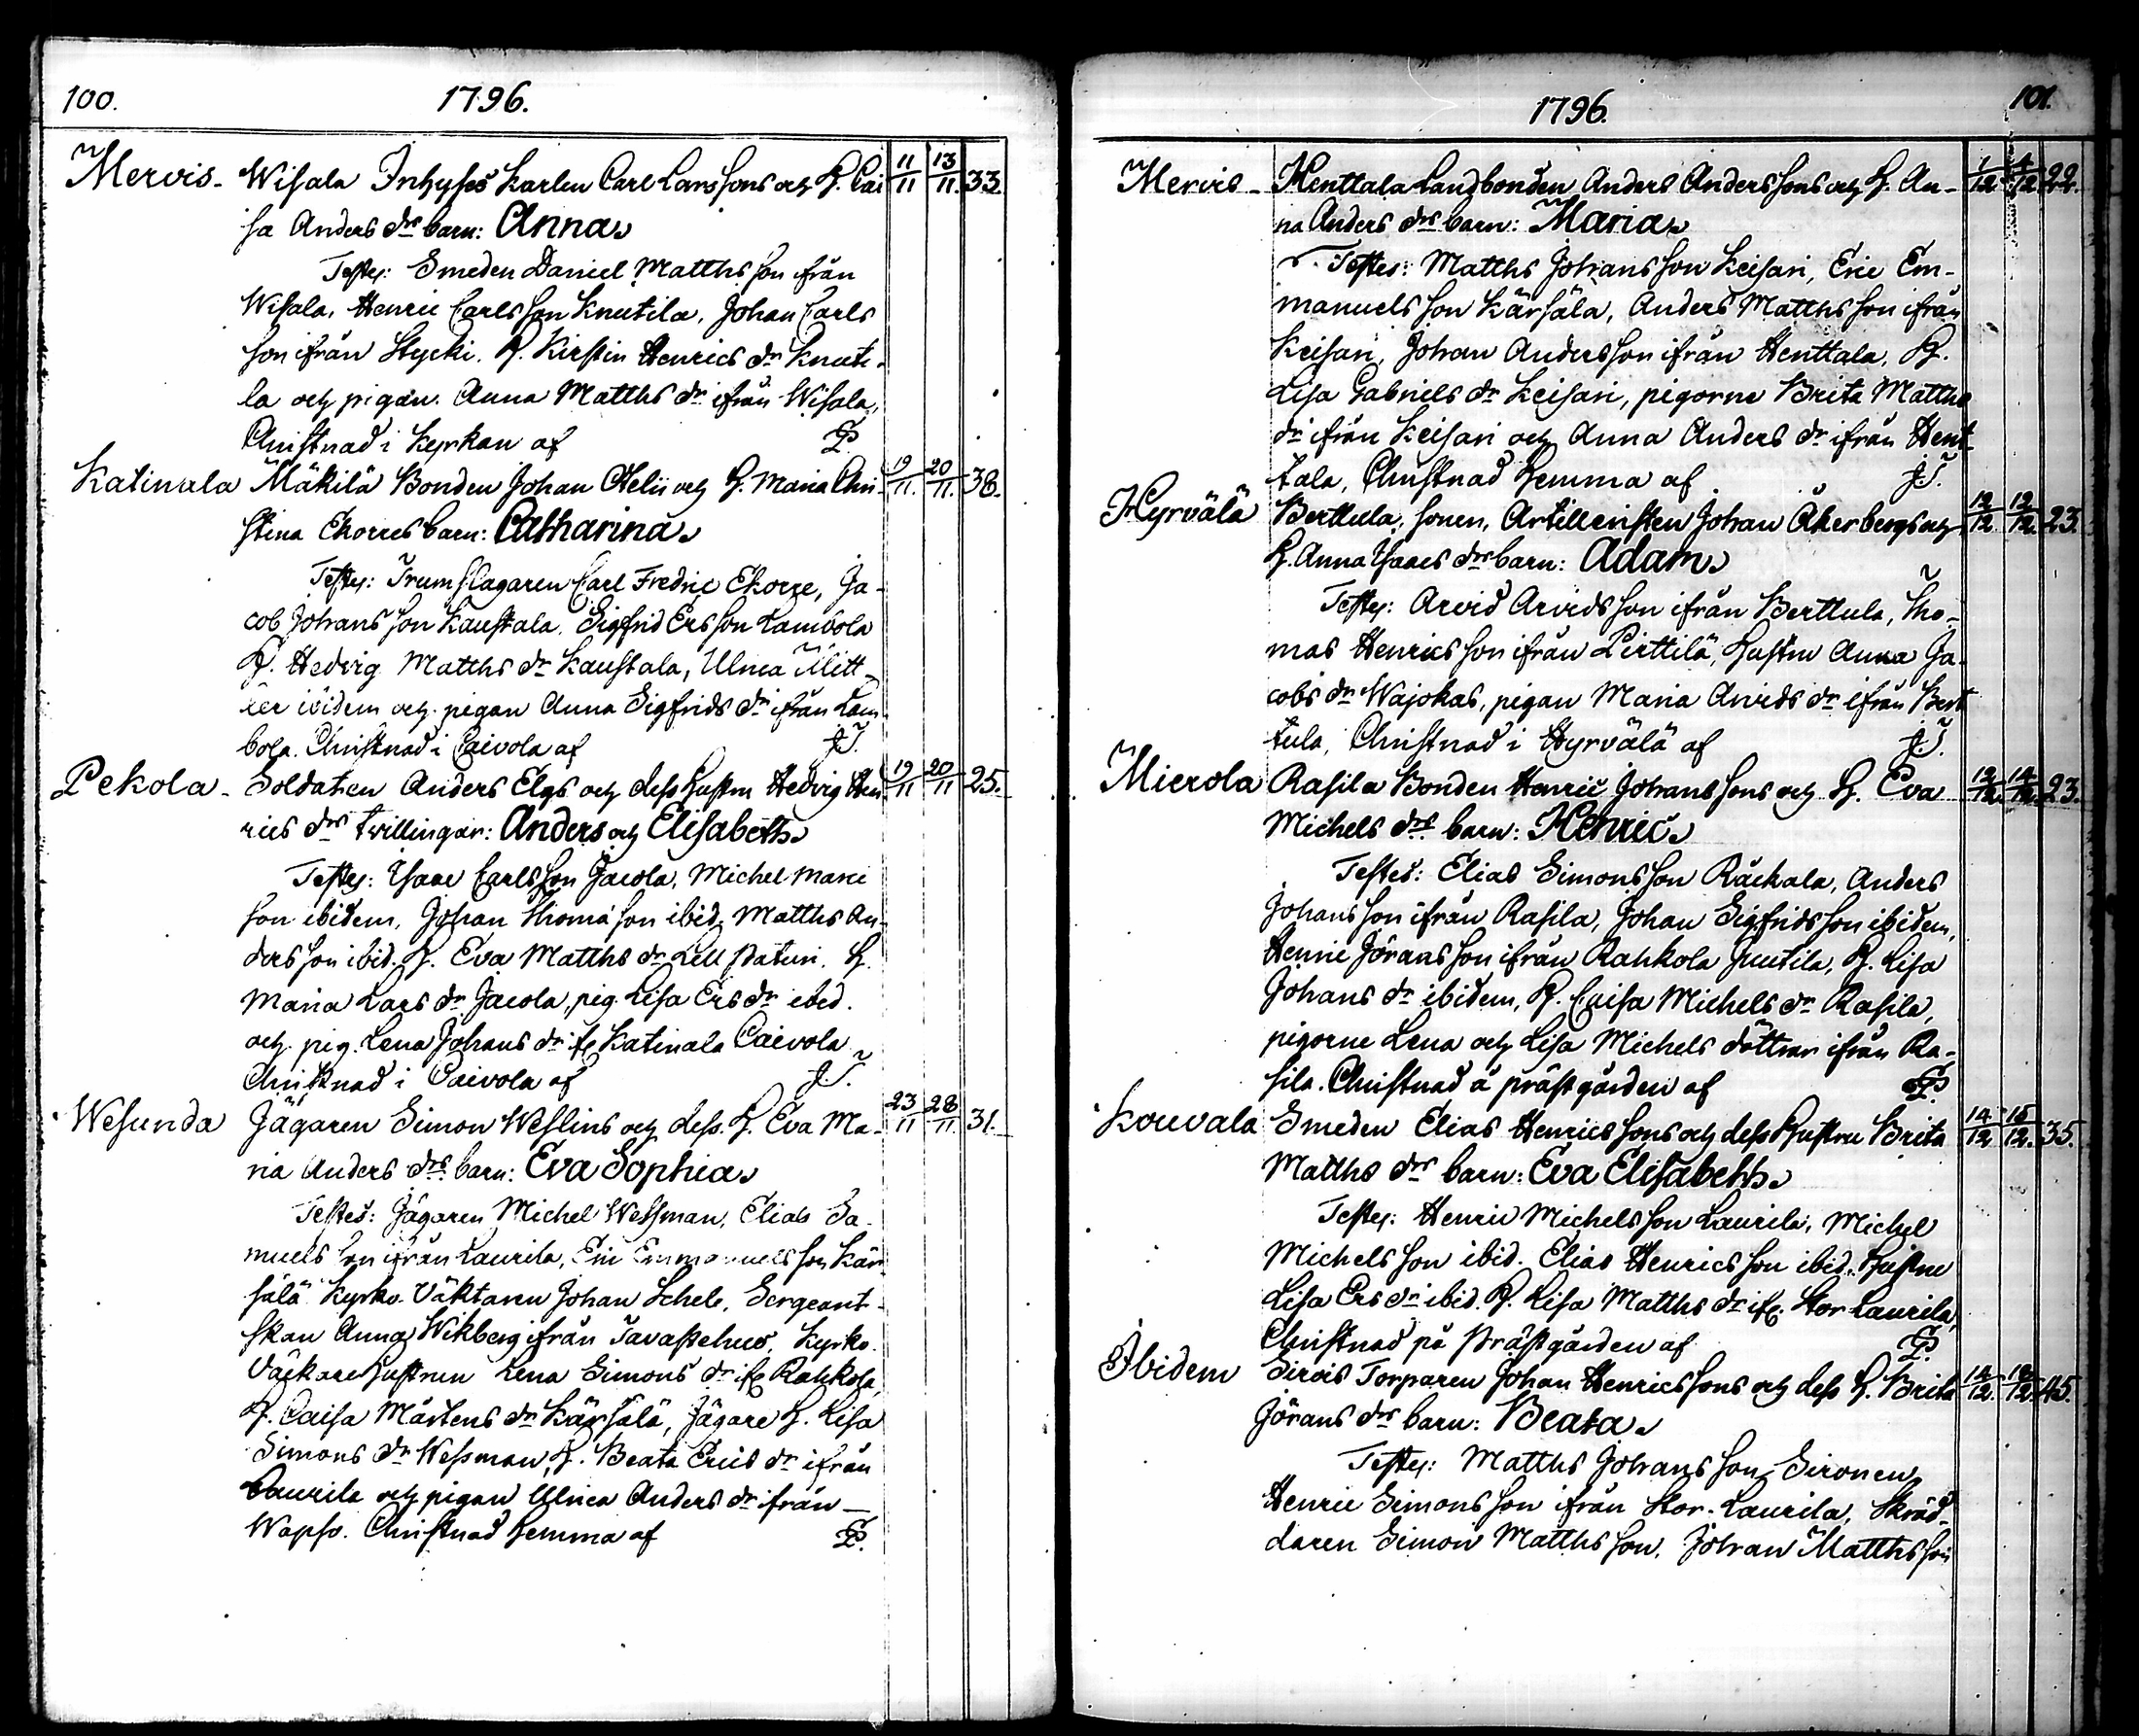 100. 1796.
Mervis- Wisala Inhyses Karlen Carl Larssons och H. Cai 11/11 13/11. 33.
sa Anders drs barn: Anna.
Testes: Smeden Daniel Matthsson ifrån
Wisala, Henric Carlsson Knutila, Johan Carls
son ifrån Stycki. H. Kirstin Henrics dr Knuti-
la och pigan Anna Matths dr ifrån Wisala,
Christnad i Kyrkan af
Katinala Mäkilä Bonden Johan Helii och H. Maria Chri- 19/11. 20/11. 38.
stina Ekorres barn: Catharina.
Testes: Trumslagaren Carl Fredric Ekorre, Ja-
cob Johansson Kaustala, Sigfrid Ersson Lambola
H. Hedvig Matths dr Kaustala, Ulrica
ibidem och pigan Anna Sigfrids dr ifrån Lam-
bola. Christnad i Caivola af J.T.
Pekola- Soldaten Anders Elgs och dess hustru Hedvig Hen 19/11 20/11 25.
rics drs tvillingar: Anders och Elisabeth.
Testes: Isaac Carlsson Jacola, Michel Marc
son ibidem, Johan Thomasson ibid. Matths An-
dersson ibid. H. Eva Matths dr Lill Paturi. H.
Maria Lars dr Jacola, pig. Lisa Ers dr ibid.
och pig. Lena Johans dr ifr Katinala Caivola
Christnad i Caivola af J.T.
Wesunda Jägaren Simon Weslins och dess H. Eva Ma- 23/11 28/11. 31.
ria Anders drs barn: Eva Sophia.
Testes: Jägaren Michel Wessman, Elias Sa-
muelsson ifrån Laurila, Eric Emmanuelsson Kär-
sälä Kyrko Väktaren Johan Schele, Sergeant-
skan Anna Wikberg ifrån Tavastehus, Kyrko-
Väckare hustrun Lena Simons dr ifr Rahkola,
H. Caisa Mårtens dr Kärsälä, Jägare H. Lisa
Simons dr Wessman, H. Beata Erics dr ifrån
Laurila och pigan Ulrica Anders dr ifrån -
Wapso. Christnad hemma af
1796. 101.
Mervis- Henttala Landbonden Anders Anderssons och H. An- 1/12. 4/12 22.
na Anders drs barn: Maria.
Testes: Matths Johansson Keisari, Eric Em-
manuelsson Kärsälä, Anders Matthsson ifrån
Keisari, Johan Andersson ifrån Henttala, H.
Lisa Gabriels dr Keisari, pigorne Brita Matths
dr ifrån Keisari och Anna Anders dr ifrån Hent-
tala, Christnad hemma af J.T.
Hyrvälä Berttula, sonen, Artilleristen Johan Åkerbergs och 12/12. 12/12. 23.
H. Anna Isaacs drs barn: Adam.
Testes: Arvid Arvidsson ifrån Berttula, Tho-
mas Henricsson ifrån Pirttilä, hustru Anna Ja-
cobs dr Wajokas, pigan Maria Arvids dr ifrån Bert
tula, Christnad i Hyrvälä af J.T.
Mierola Rasila Bonden Henric Johanssons och H. Eva 12/12. 14/12. 23.
Michels drs barn: Henric.
Testes: Elias Simonsson Räckala, Anders
Johansson ifrån Rasila, Johan Sigfridsson ibidem,
Henric Jöransson ifrån Rahkola Juutila, H. Lisa
Johans dr ibidem, H. Caisa Michels dr Rasila,
pigorne Lena och Lisa Michels döttrar ifrån Ra-
sila. Christnad å prästgården af
Kouvala Smeden Elias Henricssons och dess hustru Brita 14/12 15/12. 35.
Matths drs barn: Eva Elisabeth.
Testes: Henric Michelsson Laurila, Michel
Michelsson ibid. Elias Henricsson ibid. hustru
Lisa Ers dr ibid. H. Lisa Matths dr ifr. Stor Laurila,
Christnad på Prästgården af
Ibidem Sirois Torparen Johan Henricssons och dess H. Brita 14/12. 45.
Jörans drs barn: Beata.
Testes: Matths Johansson Sironen,
Henric Simonsson ifrån Stor-Laurila, Skräd-
daren Simon Matthsson, Johan Matthsson